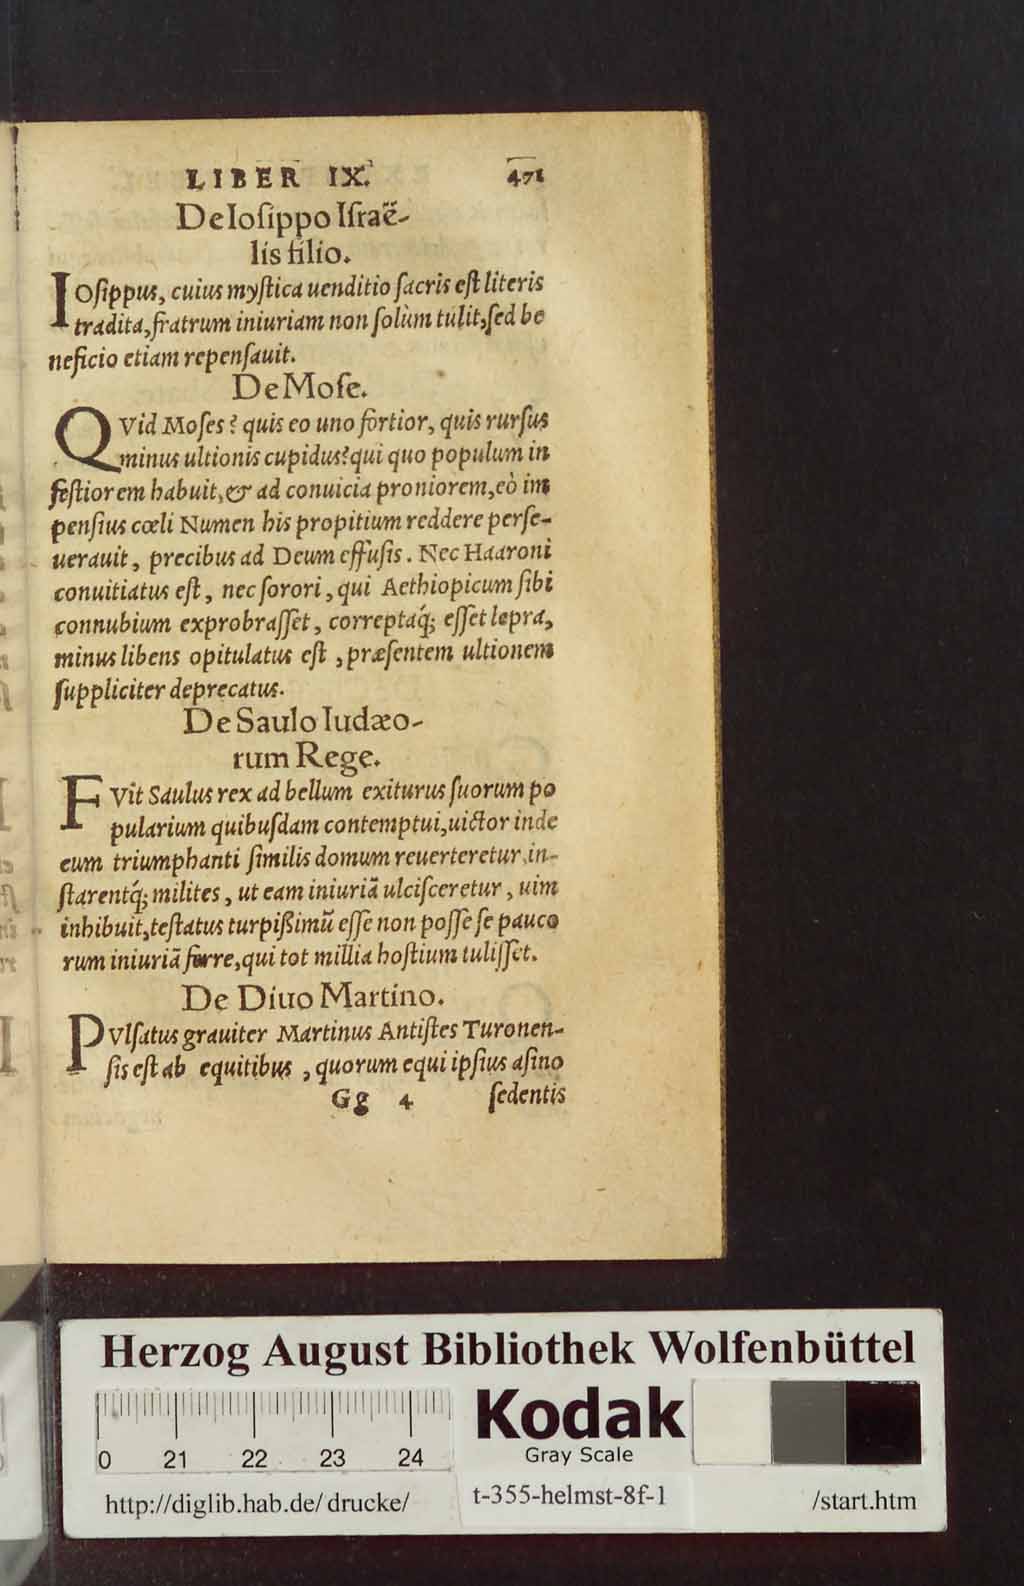 LIBER IX. 471
De Iosippo Israë-
lis filio.
IOsippus, cuius mystica uenditio sacris est literis
tradita, fratrum iniuriam non solùm tulit, sed be
neficio etiam repensauit.
De Mose.
QVid Moses? quis eo uno fortior, quis rursus
minus ultionis cupidus? qui quo populum in
festiorem habuit, & ad conuicia proniorem, eò im
pensius cœli Numen his propitium reddere perse-
uerauit, precibus ad Deum effusis. Nec Haaroni
conuitiatus est, nec sorori, qui Aethiopicum sibi
connubium exprobrasset, correptaq́; esset lepra,
minus libens opitulatus est, præsentem ultionem
suppliciter deprecatus.
De Saulo Iudæo-
rum Rege.
FVit Saulus rex ad bellum exiturus suorum po
pularium quibusdam contemptui, uictor inde
cum triumphanti similis domum reuerteretur, in-
starentq́; milites, ut eam iniuriā ulcisceretur, uim
inhibuit, testatus turpißimū esse non posse se pauco
rum iniuriā ferre, qui tot millia hostium tulisset.
De Diuo Martino.
PVlsatus grauiter Martinus Antistes Turonen-
sis est ab equitibus, quorum equi ipsius asino
Gg 4 sedentis
Herzog August Bibliothek Wolfenbüttel
0 21 22 23 24
Kodak
Gray Scale
http://diglib.hab.de/drucke/ t-355-helmst-8f-1 /start.htm